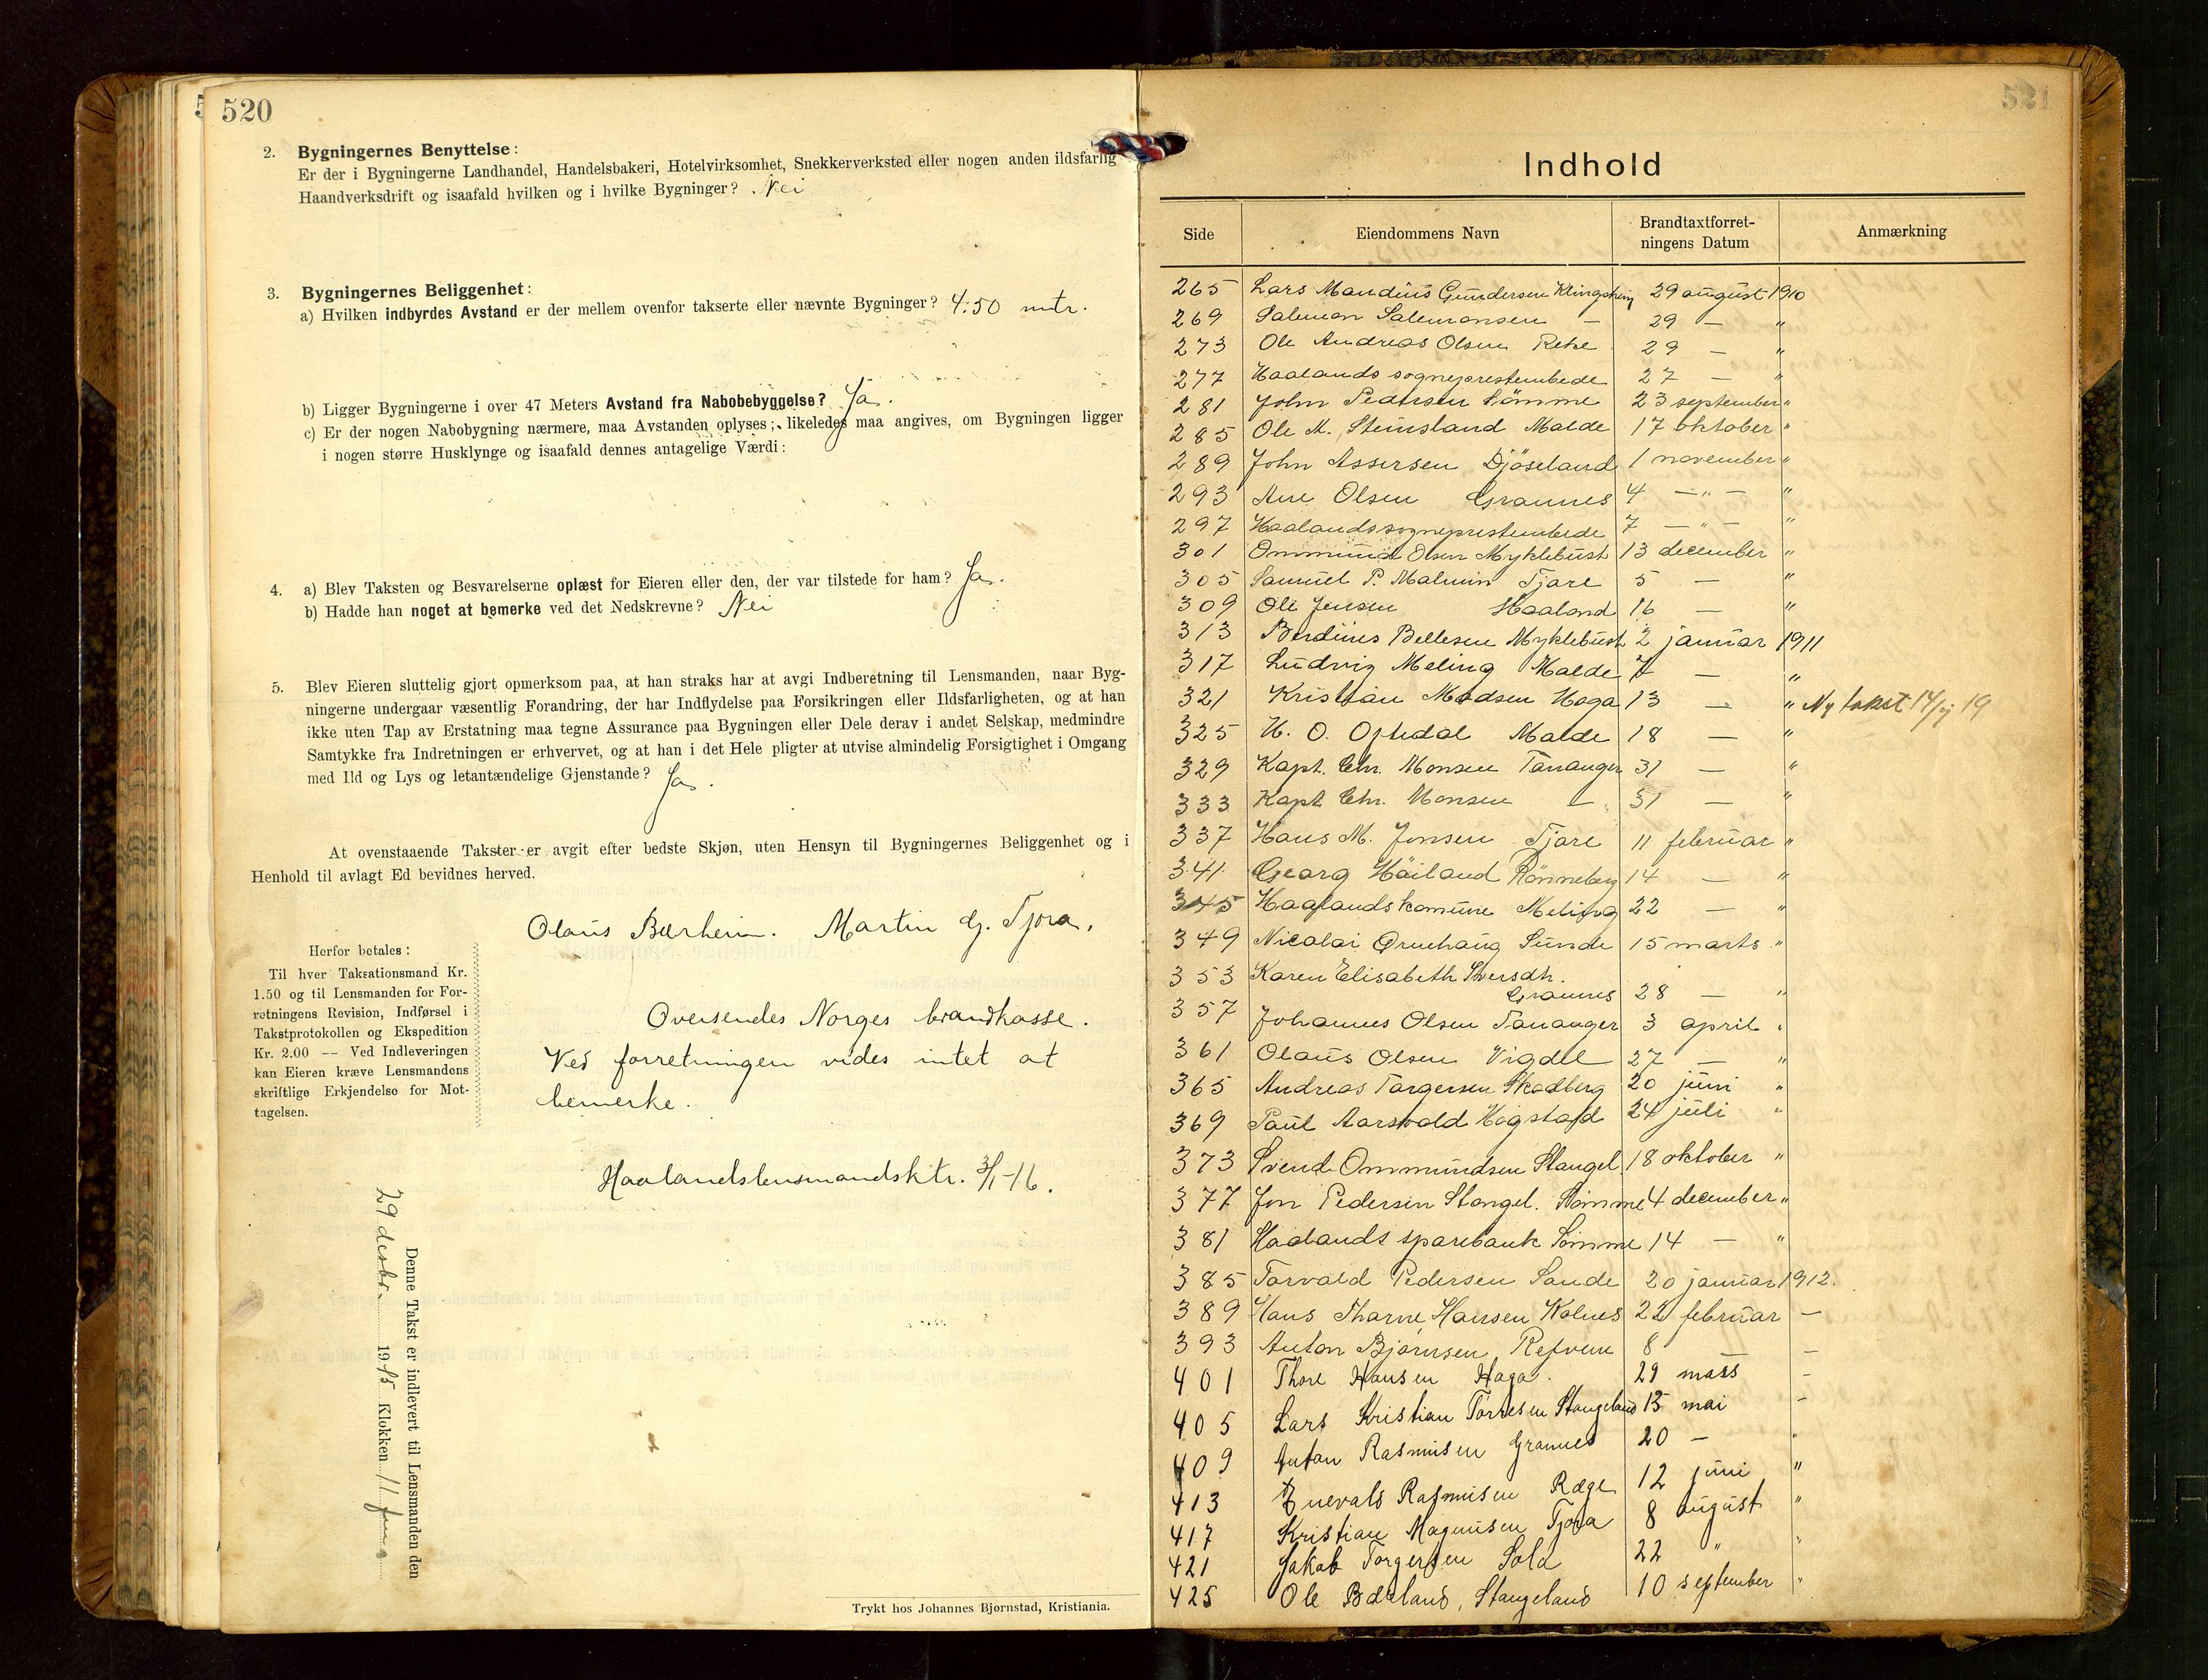 520
2. Bygningernes Benyttelse:
Er der i Bygningerne Landhandel, Handelsbakeri, Hotelvirksomhet, Snekkerverksted eller nogen anden ildsfarlig
Haandverksdrift og isaafald hvilken og i hvilke Bygninger? Nei
3. Bygningernes Beliggenhet:
a) Hvilken indbyrdes Avstand er der mellem ovenfor takserte eller nævnte Bygninger? 4:50 mtr.
b) Ligger Bygningerne i over 47 Meters Avstand fra Nabobebyggelse? Ja.
c) Er der nogen Nabobygning nærmere, maa Avstanden oplyses; likeledes maa angives, om Bygningen ligger
i nogen større Husklynge og isaafald dennes antagelige Værdi:
4. a) Blev Taksten og Besvarelserne oplæst for Eieren eller den, der var tilstede for ham? Ja.
b) Hadde han noget at bemerke ved det Nedskrevne? Nei
5. Blev Eieren sluttelig gjort opmerksom paa, at han straks har at avgi Indberetning til Lensmanden, naar Byg-
ningerne undergaar væsentlig Forandring, der har Indflydelse paa Forsikringen eller Ildsfarligheten, og at han
ikke uten Tap av Erstatning maa tegne Assurance paa Bygningen eller Dele derav i andet Selskap, medmindre
Samtykke fra Indretningen er erhvervet, og at han i det Hele pligter at utvise almindelig Forsigtighet i Omgang
med Ild og Lys og letantændelige Gjenstande? Ja.
At ovenstaaende Takster er avgit efter bedste Skjøn, uten Hensyn til Bygningernes Beliggenhet og i
Henhold til avlagt Ed bevidnes herved.
Olaus Bærheim. Martin G. Tjora.
Herfor betales:
Til hver Taksationsmand Kr.
1.50 og til Lensmanden for For-
retningens Revision, Indførsel i
Takstprotokollen og Ekspedition
Kr. 2.00 — Ved Indleveringen
kan Eieren kræve Lensmandens
skriftlige Erkjendelse for Mot-
tagelsen.
Oversendes Norges brandkasse.
Ved forretningen vides intet at
bemerke.
Haalandslensmandsktr. 3/1-16.
Denne Takst er indlevert til Lensmanden den
29 desbr. 1915 Klokken 11 fm.
Trykt hos Johannes Bjørnstad, Kristiania.
521
Indhold
Side Eiendommens Navn Brandtaxtforret-
ningens Datum Anmærkning
265 Lars Mandius Gundersen 29 august 1910
269 Salemon Salemonsen — 29 — "
273 Ole Andreas Olsen Reke 29 — "
277 Haalands sogneprestembede 27 — "
281 John Pedersen Sömme 23 september "
285 Ole M. Steinsland Malde 17 oktober "
289 John Assersen Djöseland 1 november "
293 Ane Olsen Grannes 4 — " — "
297 Haalands sogneprestembede 7 — " — "
301 Ommund Olsen Myklebust 13 december "
305 Samuel P. Malmin Tjare 5 — "
309 Ole Jensen Haaland 16 — "
313 Berdines Bellesen Myklebust 2 januar 1911
317 Ludvig Meling Malde 7 — "
321 Kristian Madsen Haga 13 — " Ny takst 19
325 H. O. Opdedal Malde 18 — "
329 Kapt. Chr. Monsen Tananger 31 — "
333 Kapt Chr. Monsen — 31 — "
337 Hans M. Jonsen Tjare 11 februar "
341 Georg Håiland Rönneberg 14 — "
345 Haalands komune Meling 22 — "
349 Nicolai Grudhaug Sunde 15 marts "
353 Karen Elisabeth Sversdh.
Grannes 28 — "
357 Johannes Olsen Tananger 3 april "
361 Olaus Olsen Vigdel 27 — "
365 Andreas Torgersen Skadberg 20 juni "
369 Paul Aarsvold Hogstad 24 juli "
373 Svend Ommundsen Stangel. 18 oktober "
377 Jon Pedersen Stangel. Sömme 4 december "
381 Haalands sparebank Sömme 14 — "
385 Torvald Pedersen Sande 20 januar 1912.
389 Hans Tharne Hansen Kolnes 22 februar —
393 Anton Bjørnsen, Refvem 8 —
401 Thore Hansen Haga. 29 mars —
405 Lars Kristian Torresen Stangeland 15 mai —
409 Anton Rasmusen Grannes 20 — "
413 Enevald Rasmusen Ræge 12 juni "
417 Kristian Magnusen Tjora 8 august "
421 Jakob Torgersen Sola 22 " "
425 Ole Bærland, Stangeland 10 september "